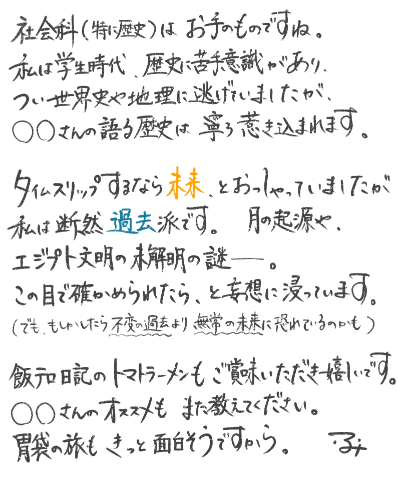 社会科(特に歴史)は お手のものですね。
私は学生時代、歴史に苦手意識があり、
つい世界史や地理に逃げていましたが、
○○さんの語る歴史は 寧ろ惹き込まれます。
タイムスリップするなら未来、とおっしゃっていましたが
私は断然過去派です。 月の起源や、
エジプト文明の未解明の謎──。
この目で確かめられたら、と妄想に浸っています。
(でも、もしかしたら不変の過去より無常の未来に恐れているのかも)
飯テロ日記のトマトラーメンもご賞味いただき嬉しいです。
○○さんのオススメも また教えてください。
胃袋の旅も きっと面白そうですから。